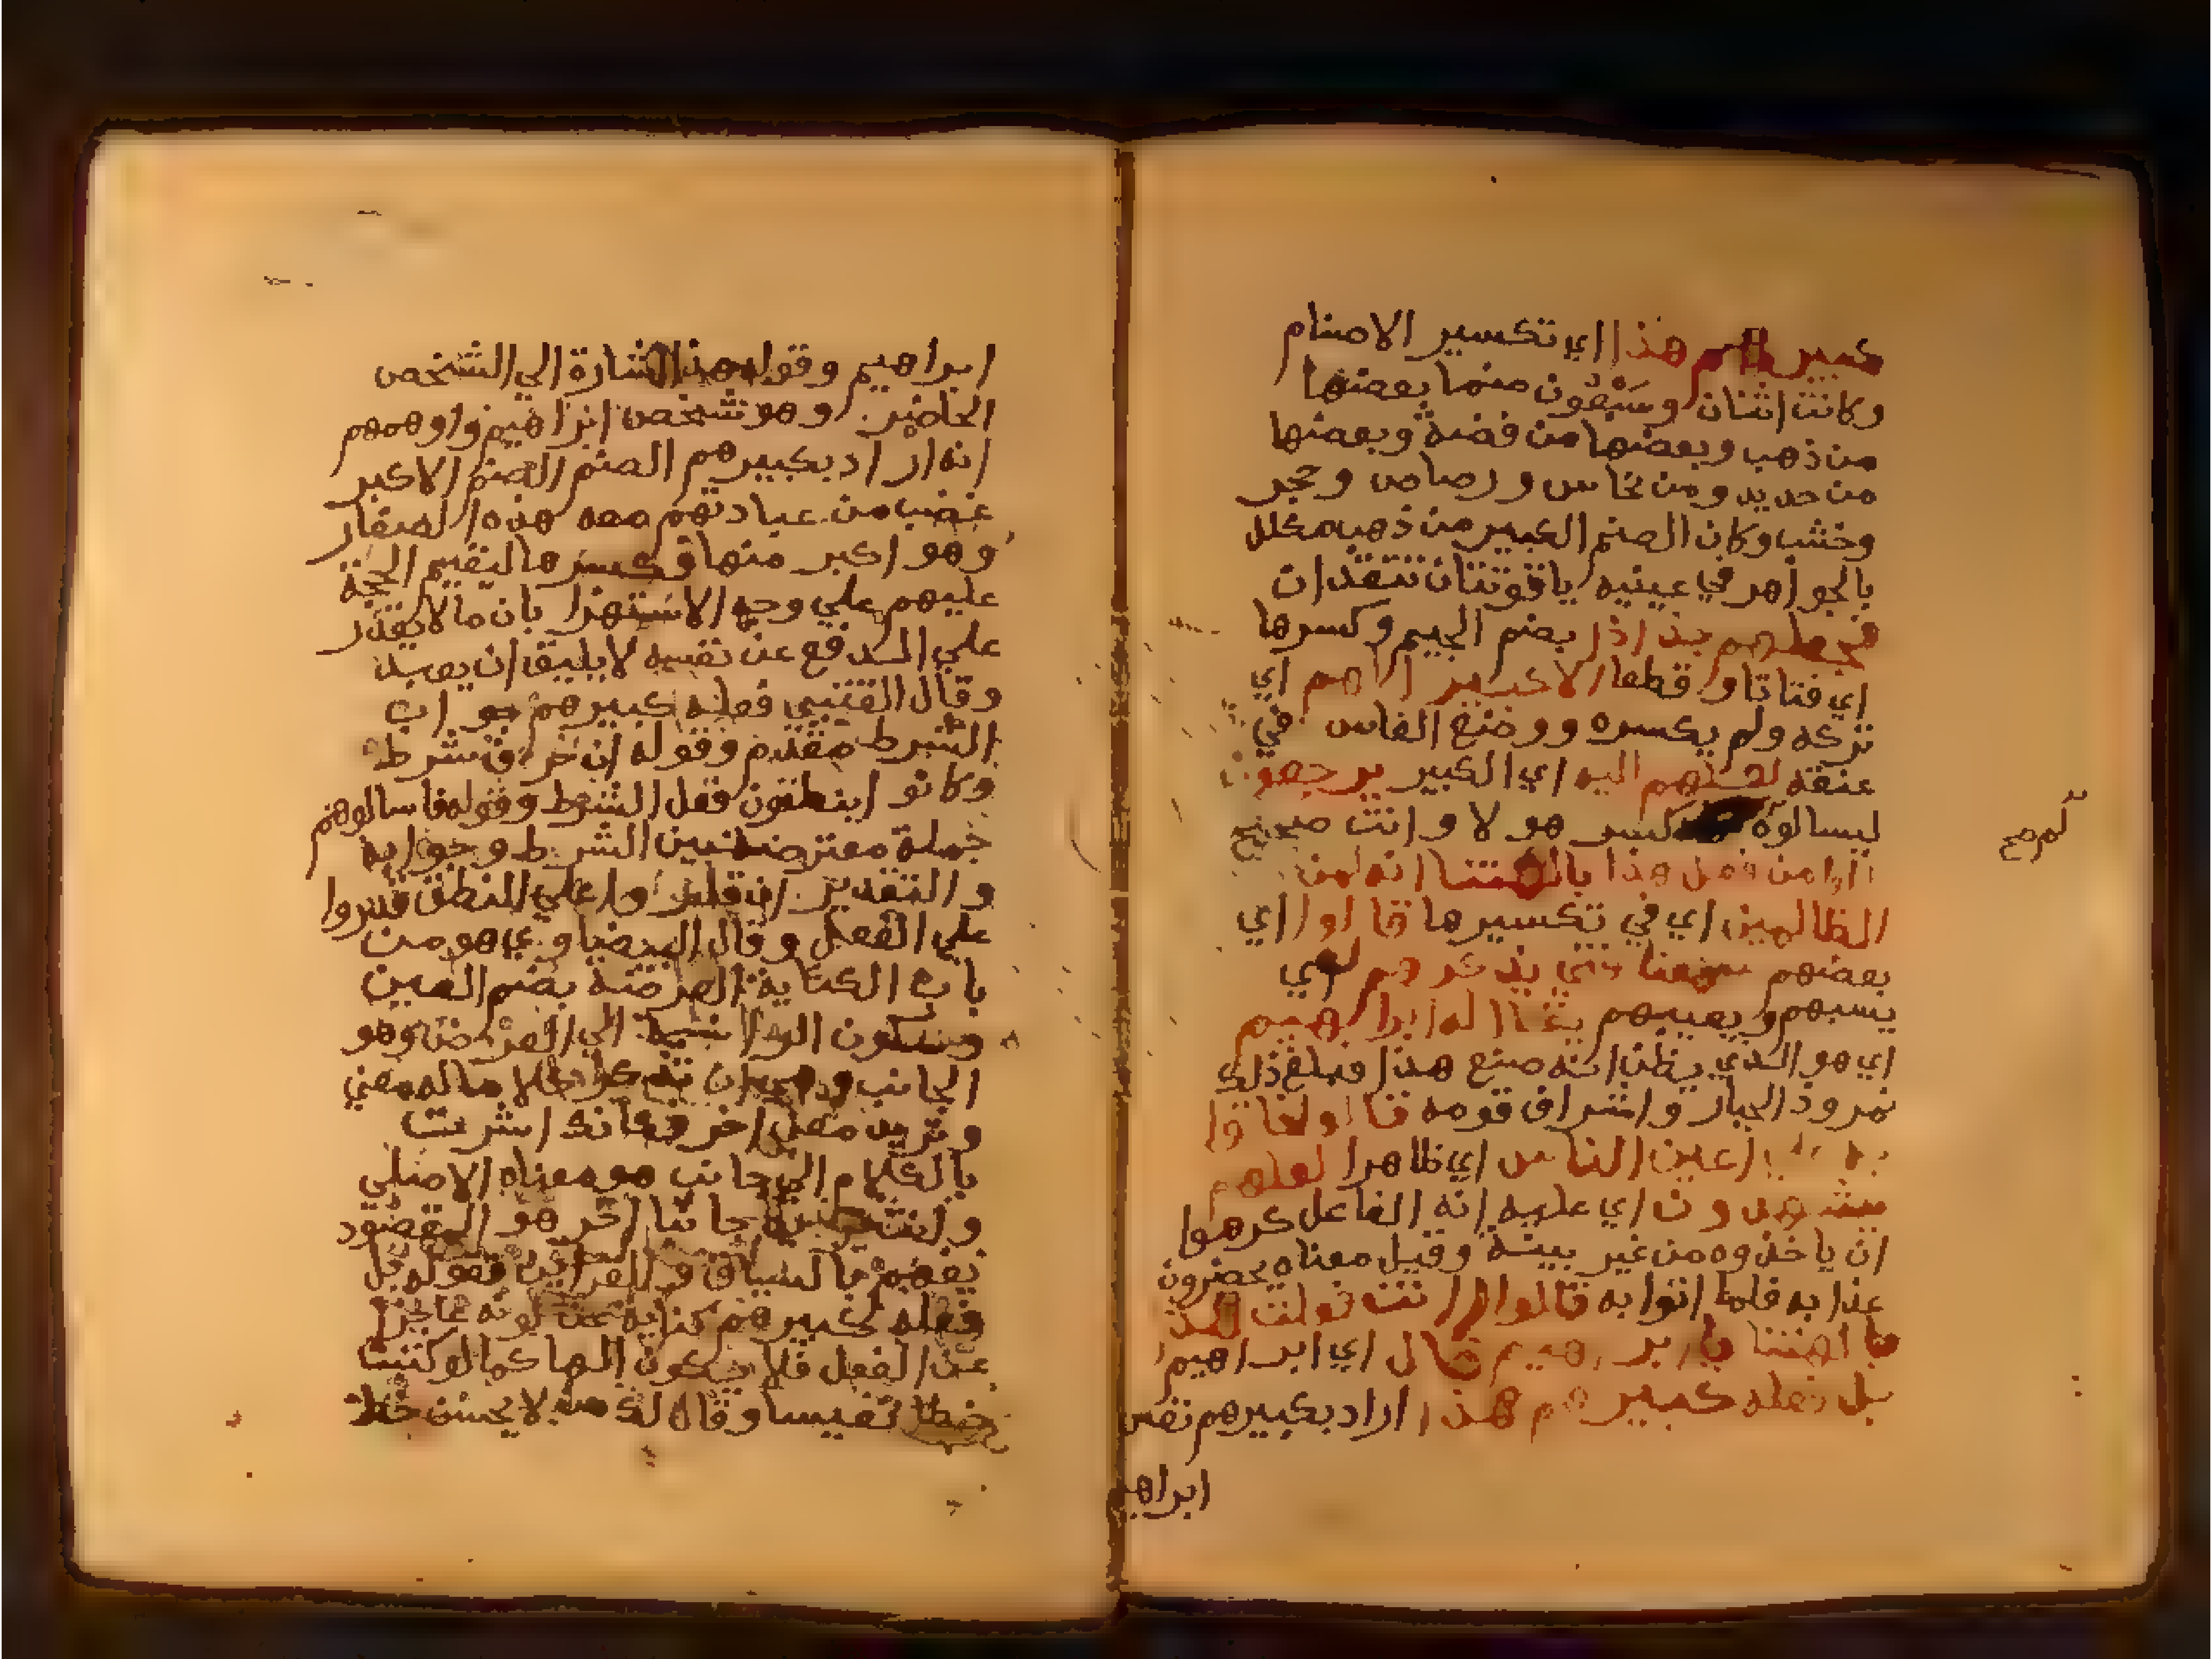 كبيرهم هذا اي تكسير الاصنام
وكانت اثنان وسبعون صنما بعضها
من ذهب وبعضها من فضة وبعضها
من حديد ومن نحاس ورصاص وحجر
وخشب وكان الصنم الكبير من ذهب مكلل
بالجواهر في عينيه ياقوتتان تتقدان
فجعلهم جذاذا بضم الجيم وكسرها
اي فتاتا وقطعا الا كبيرا لهم اي
تركه ولم يكسره ووضع الفاس في
عنقه لعلهم اليه اي الكبير يرجعون
ليسالوه كسر هولا وانت صحيح
لم صح
قالوا من فعل هذا بالهتنا انه لمن
الظالمين اي في تكسيرها قالوا اي
بعضهم سمعنا فتي يذكرهم اي
يسبهم ويعيبهم يقال له ابراهيم
اي هو الذي يظن انه صنع هذا فبلغ ذلك
نمروذ الجبار واشراف قومه قالوا فاتوا
اعين الناس اي ظاهرا لعلهم
يشهدون اي عليه انه الفاعل كرهوا
ان ياخذوه من غير بينة وقيل معناه يحضرون
عذابه فلما اتوا به قالوا اانت فعلت هذا
بالهتنا يا ابرهيم قال اي ابراهيم
بل فعله كبيرهم هذا اراد بكبيرهم نفس
ابراهيم
ابراهيم وقوله هذا اشارة الي الشخص
الحاضر وهو شخص ابراهيم واوهمهم
انه اراد بكبيرهم الصنم الصنم الاكبر
غضب من عبادتهم معه هذه الصغار
وهو اكبر منها فكسرها ليقيم الحجة
عليهم علي وجه الاستهزا بان ما لا يقدر
علي الدفع عن نفسه لا يليق ان يعبد
وقال القتيبي فعله كبيرهم جواب
الشرط مقدم وقوله ان حرف شرط
وكانوا ينطقون فعل الشرط وقوله فاسالوهم
جملة معترضة بين الشرط وجوابه
والتقدير ان قدروا علي النطق قدروا
علي الفعل وقال البيضاوي هو من
باب الكناية العرضية بضم العين
وسكون الرا نسبة الي العرض وهو
الجانب وهي ان تذكر كلاما له معني
وتريد معني اخر فكانك اشرت
بالكلام الي جانب هو معناه الاصلي
جانبا اخر هو المقصود
يفهم بالسياق والقراين فقوله بل
فعله كبيرهم كناية عن كونه عاجزا
عن الفعل فلا يكون الها كما لو كتبت
خطا نفيسا وقال لك من لا يحسن خط